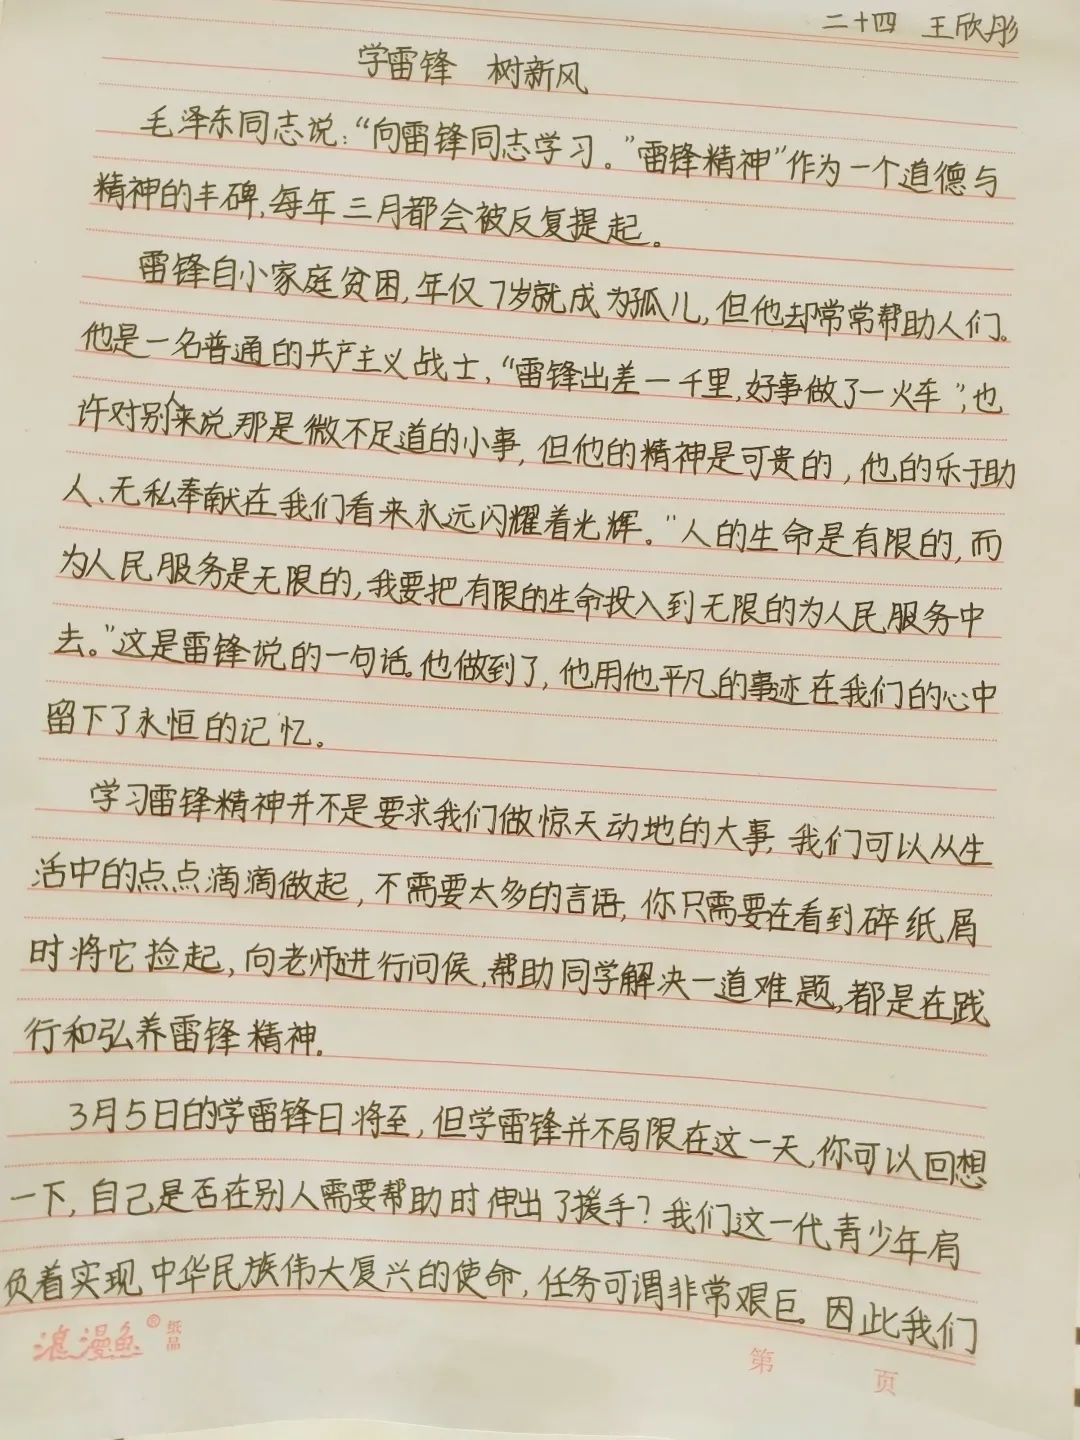 二十四 王欣彤
学雷锋 树新风
毛泽东同志说：“向雷锋同志学习。”“雷锋精神”作为一个道德与
精神的丰碑，每年三月都会被反复提起。
雷锋自小家庭贫困，年仅7岁就成为孤儿，但他却常常帮助人们。
他是一名普通的共产主义战士，“雷锋出差一千里，好事做了一火车”，也
许对别人来说那是微不足道的小事，但他的精神是可贵的，他的乐于助
人、无私奉献在我们看来永远闪耀着光辉。“人的生命是有限的，而
为人民服务是无限的，我要把有限的生命投入到无限的为人民服务中
去。”这是雷锋说的一句话。他做到了，他用他平凡的事迹在我们的心中
留下了永恒的记忆。
学习雷锋精神并不是要求我们做惊天动地的大事，我们可以从生
活中的点点滴滴做起，不需要太多的言语，你只需要在看到碎纸屑
时将它捡起，向老师进行问侯，帮助同学解决一道难题，都是在践
行和弘养雷锋精神。
3月5日的学雷锋日将至，但学雷锋并不局限在这一天，你可以回想
一下，自己是否在别人需要帮助时伸出了援手？我们这一代青少年肩
负着实现中华民族伟大复兴的使命，任务可谓非常艰巨。因此我们
浪漫鱼®纸品
第 页